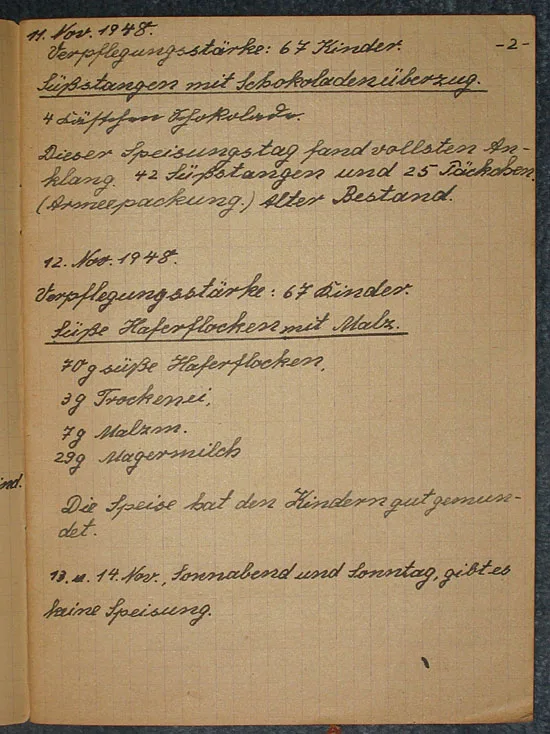 11. Nov. 1948.
-2-
Verpflegungsstärke: 67 Kinder.
Süßstangen mit Schokoladenüberzug.
4 Schokolade.
Dieser Speisungstag fand vollsten An-
klang. 42 Süßstangen und 25 Päckchen
(Armeepackung.) Alter Bestand.
12. Nov. 1948.
Verpflegungsstärke: 67 Kinder.
Süße Haferflocken mit Malz.
70 g süße Haferflocken,
3g Trockenei,
7g Malzm.
29g Magermilch
ind.
Die Speise hat den Kindern gut gemun-
det.
13. u. 14. Nov., Sonnabend und Sonntag, gibt es
keine Speisung.